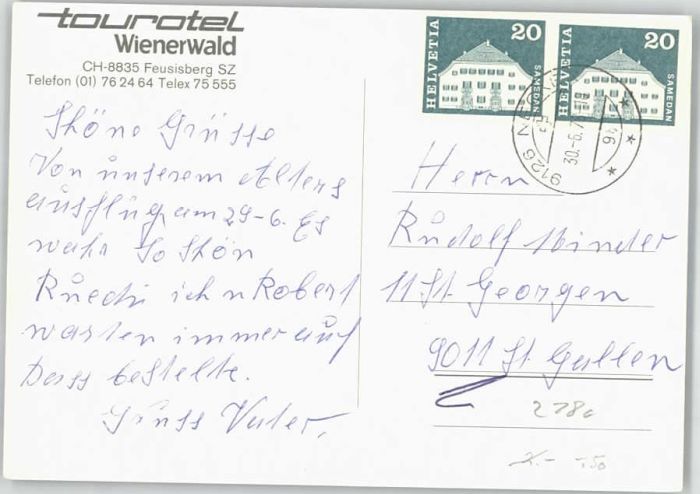 tourotel
Wienerwald
CH-8835 Feusisberg SZ
Telefon (01) 76 24 64 Telex 75 555
Shöne Grüsse
Von unserem Alters
ausflug am 29-6. Es
wahr So Shön
Ruedi ich u Robert
warten immer auf
Dass bestellte.
Gruss Vater.
HELVETIA 20 SAMEDAN
HELVETIA 20 SAMEDAN
9126
30.-6.7
Herrn
Rudolf Minder
11 St. Georgen
9011 St Gallen
218c